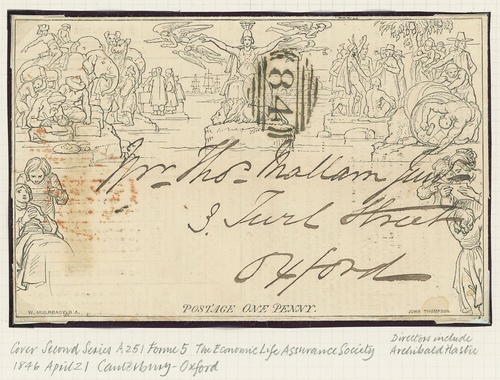 184
Mr. Thos. Mallam Junr
3. Turl Street
Oxford
W. MULREADY, R.A.
POSTAGE ONE PENNY.
JOHN THOMPSON
Cover Second Series A251 Forme 5 The Economic Life Assurance Society
1846 April 21 Canterbury - Oxford
Directors include
Archibald Hastie